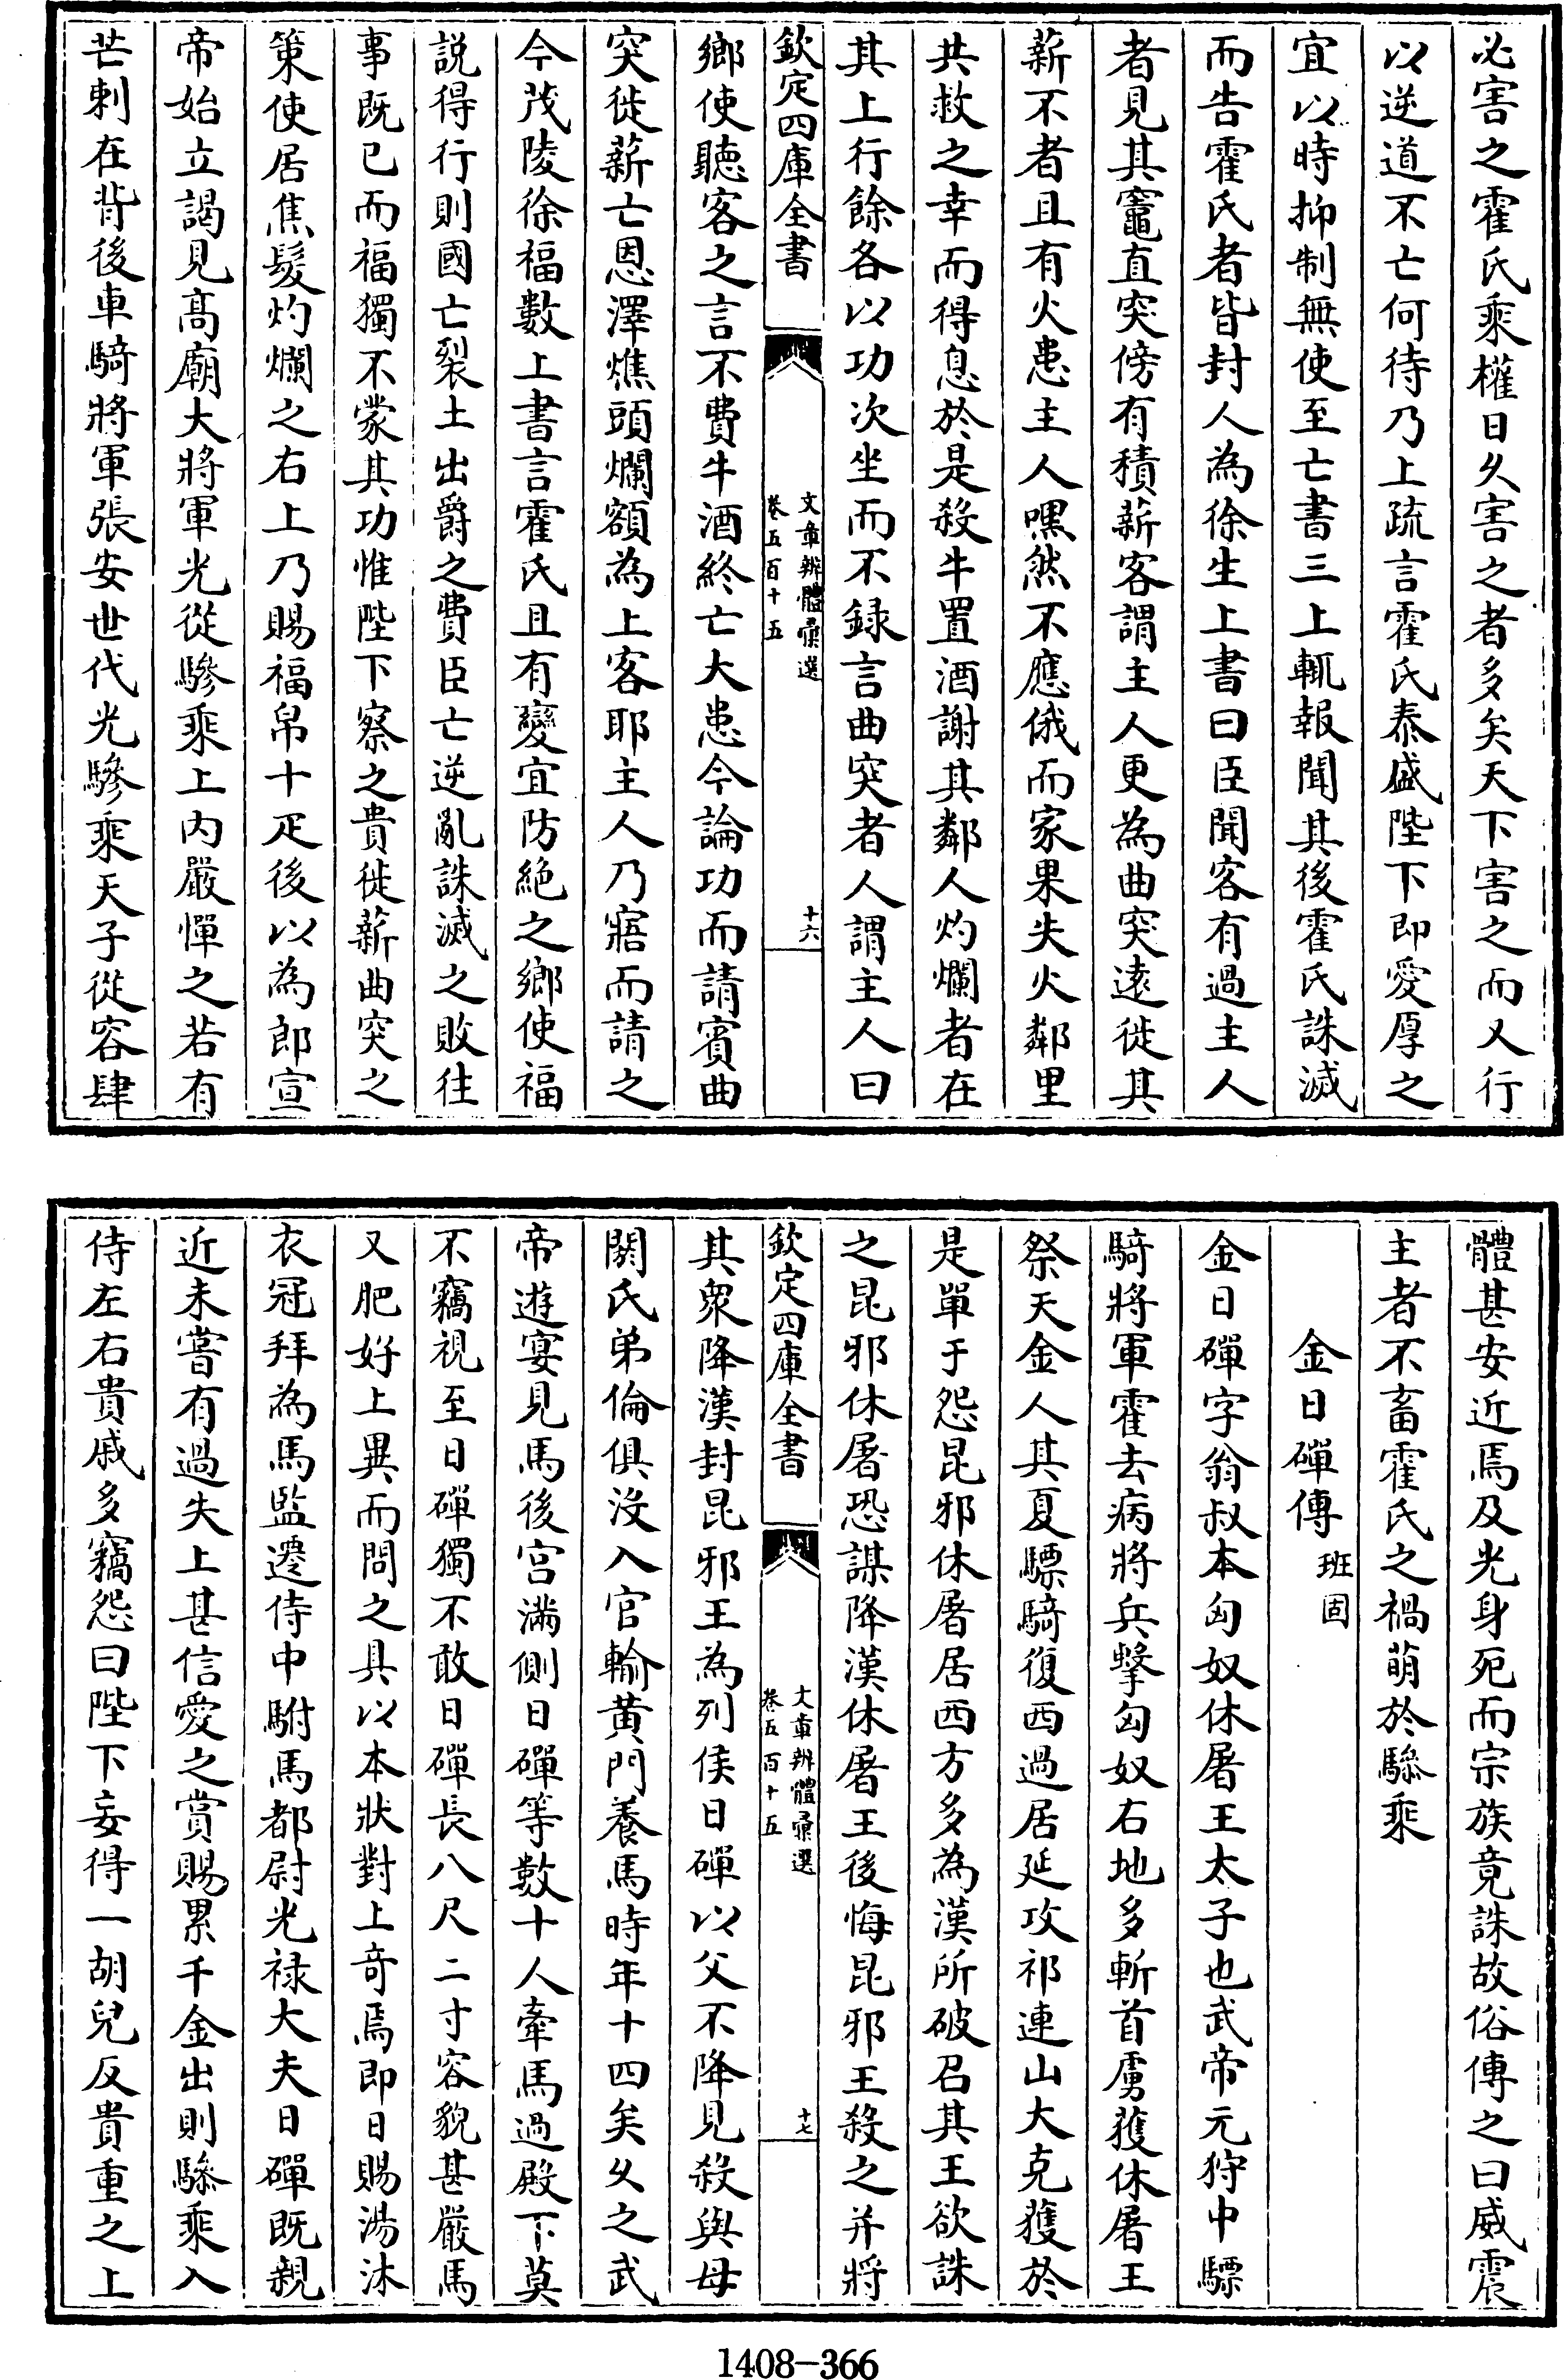 必害之霍氏乘權日久害之者多矣天下害之而又行
以逆道不亡何待乃上疏言霍氏泰盛陛下即愛厚之
宜以時抑制無使至亡書三上輒報聞其後霍氏誅滅
而告霍氏者皆封人為徐生上書曰臣聞客有過主人
者見其竈直突傍有積薪客謂主人更為曲突遠徙其
薪不者且有火患主人嘿然不應俄而家果失火鄰里
共救之幸而得息於是殺牛置酒謝其鄰人灼爛者在
其上行餘各以功次坐而不録言曲突者人謂主人曰
欽定四庫全書
文章辨體彙選
卷五百十五
十六
鄉使聽客之言不費牛酒終亡大患今論功而請賓曲
突徙薪亡恩澤燋頭爛額為上客耶主人乃寤而請之
今茂陵徐福數上書言霍氏且有變宜防絶之鄉使福
説得行則國亡裂土出爵之費臣亡逆亂誅滅之敗往
事既已而福獨不蒙其功惟陛下察之貴徙薪曲突之
策使居焦髮灼爛之右上乃賜福帛十疋後以為郎宣
帝始立謁見髙廟大將軍光從驂乘上内嚴憚之若有
芒刺在背後車騎將軍張安世代光驂乘天子從容肆
體甚安近焉及光身死而宗族竟誅故俗傳之曰威震
主者不畜霍氏之禍萌於驂乘
金日磾傳 班固
金日磾字翁叔本匈奴休屠王太子也武帝元狩中驃
騎將軍霍去病將兵擊匈奴右地多斬首虜獲休屠王
祭天金人其夏驃騎復西過居延攻祁連山大克獲於
是單于怨昆邪休屠居西方多為漢所破召其王欲誅
之昆邪休屠恐謀降漢休屠王後悔昆邪王殺之并將
欽定四庫全書
文章辨體彙選
卷五百十五
十七
其衆降漢封昆邪王為列侯日磾以父不降見殺與母
閼氏弟倫俱没入官輸黄門養馬時年十四矣久之武
帝遊宴見馬後宫滿側日磾等數十人牽馬過殿下莫
不竊視至日磾獨不敢日磾長八尺二寸容貌甚嚴馬
又肥好上異而問之具以本狀對上奇焉即日賜湯沐
衣冠拜為馬監遷侍中駙馬都尉光禄大夫日磾既親
近未嘗有過失上甚信愛之賞賜累千金出則驂乘入
侍左右貴戚多竊怨曰陛下妄得一胡兒反貴重之上
1408-366